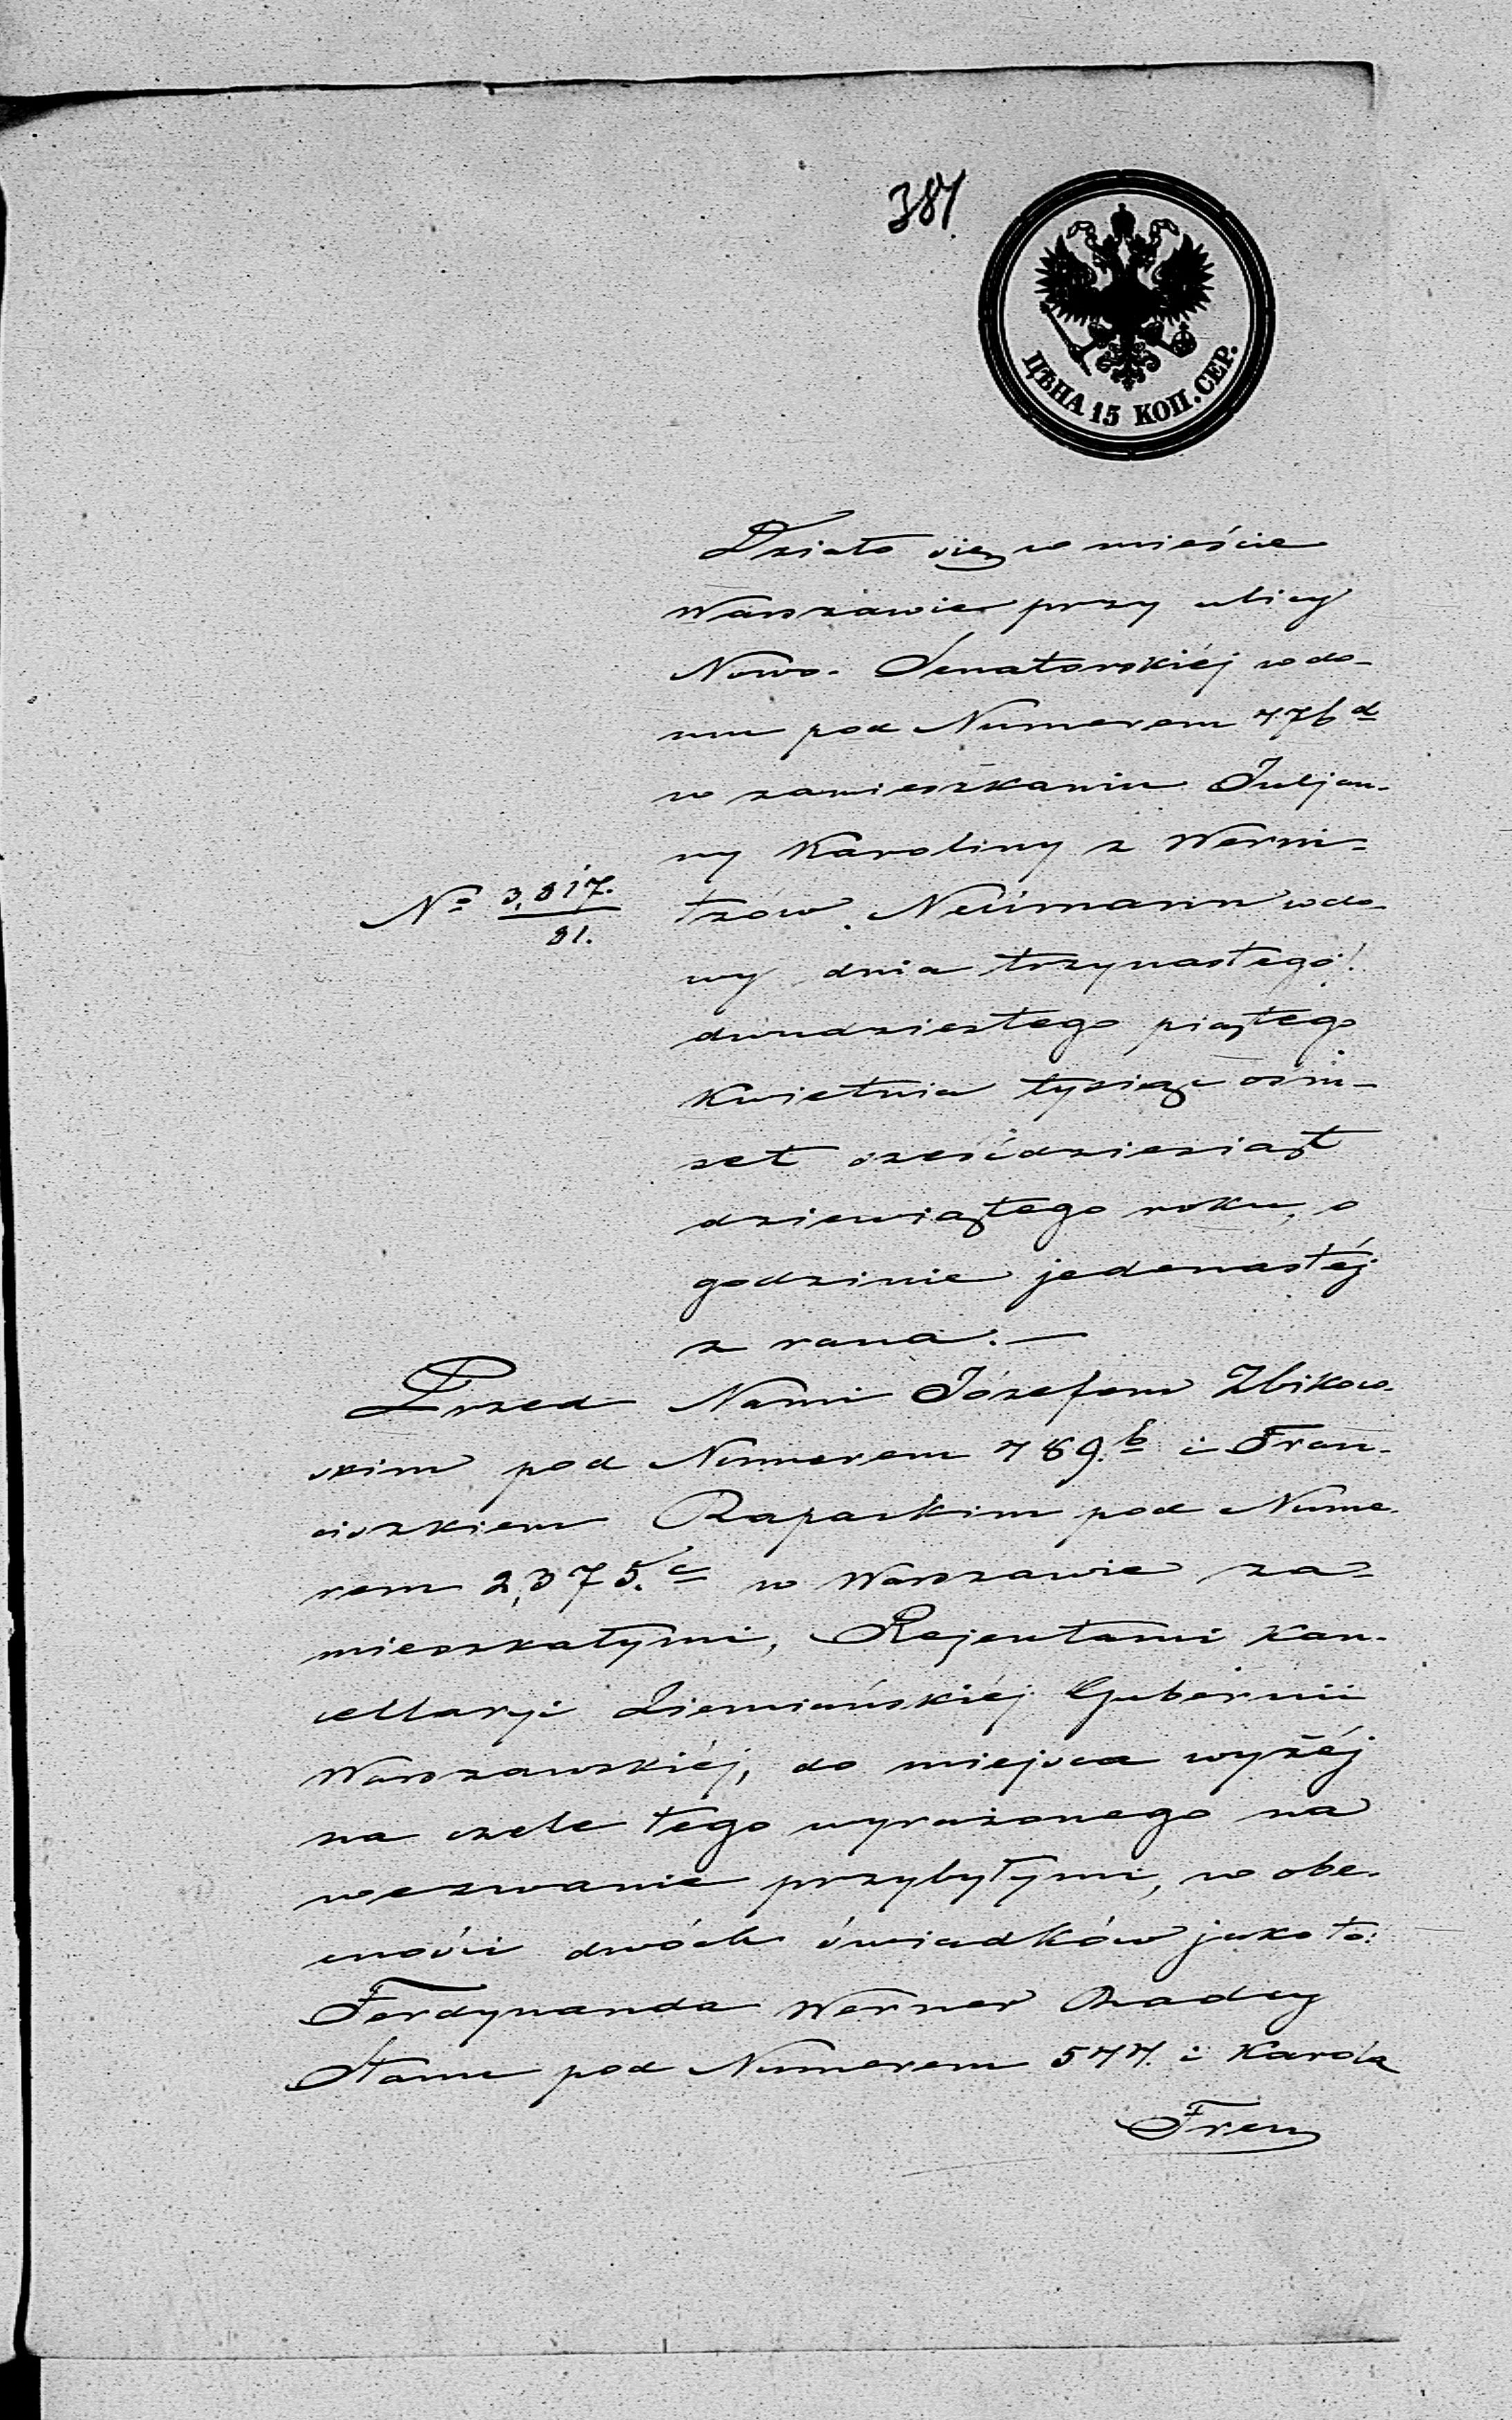 387.
ЦѢНА 15 КОП. СЕР.
Działo się w mieście
Warszawie przy ulicy
Nowo-Senatorskiéj w do-
mu pod Numerem 476 d
w zamieszkaniu Juljan-
ny Karoliny z Werni-
tzów Neümann wdo-
wy dnia trzynastego/
dwudziestego piątego
Kwietnia tysiąc ośm-
set sześćdziesiąt
dziewiątego roku, o
godzinie jedenastéj
z rana.—
No 3,817.
31.
Przed Nami Józefem Zbikow-
skim pod Numerem 489.b i Fran-
ciszkiem Rapackim pod Nume-
rem 2,375.c w Warszawie za-
mieszkałymi, Rejentami Kan-
cellaryi Ziemiańskiéj Gubernii
Warszawskiéj, do miejsca wyżéj
na czele tego wyrażonego na
wezwanie przybyłymi, w obe-
cności dwóch świadków jako to:
Ferdynanda Werner Radcy
Stanu pod Numerem 547. i Karola